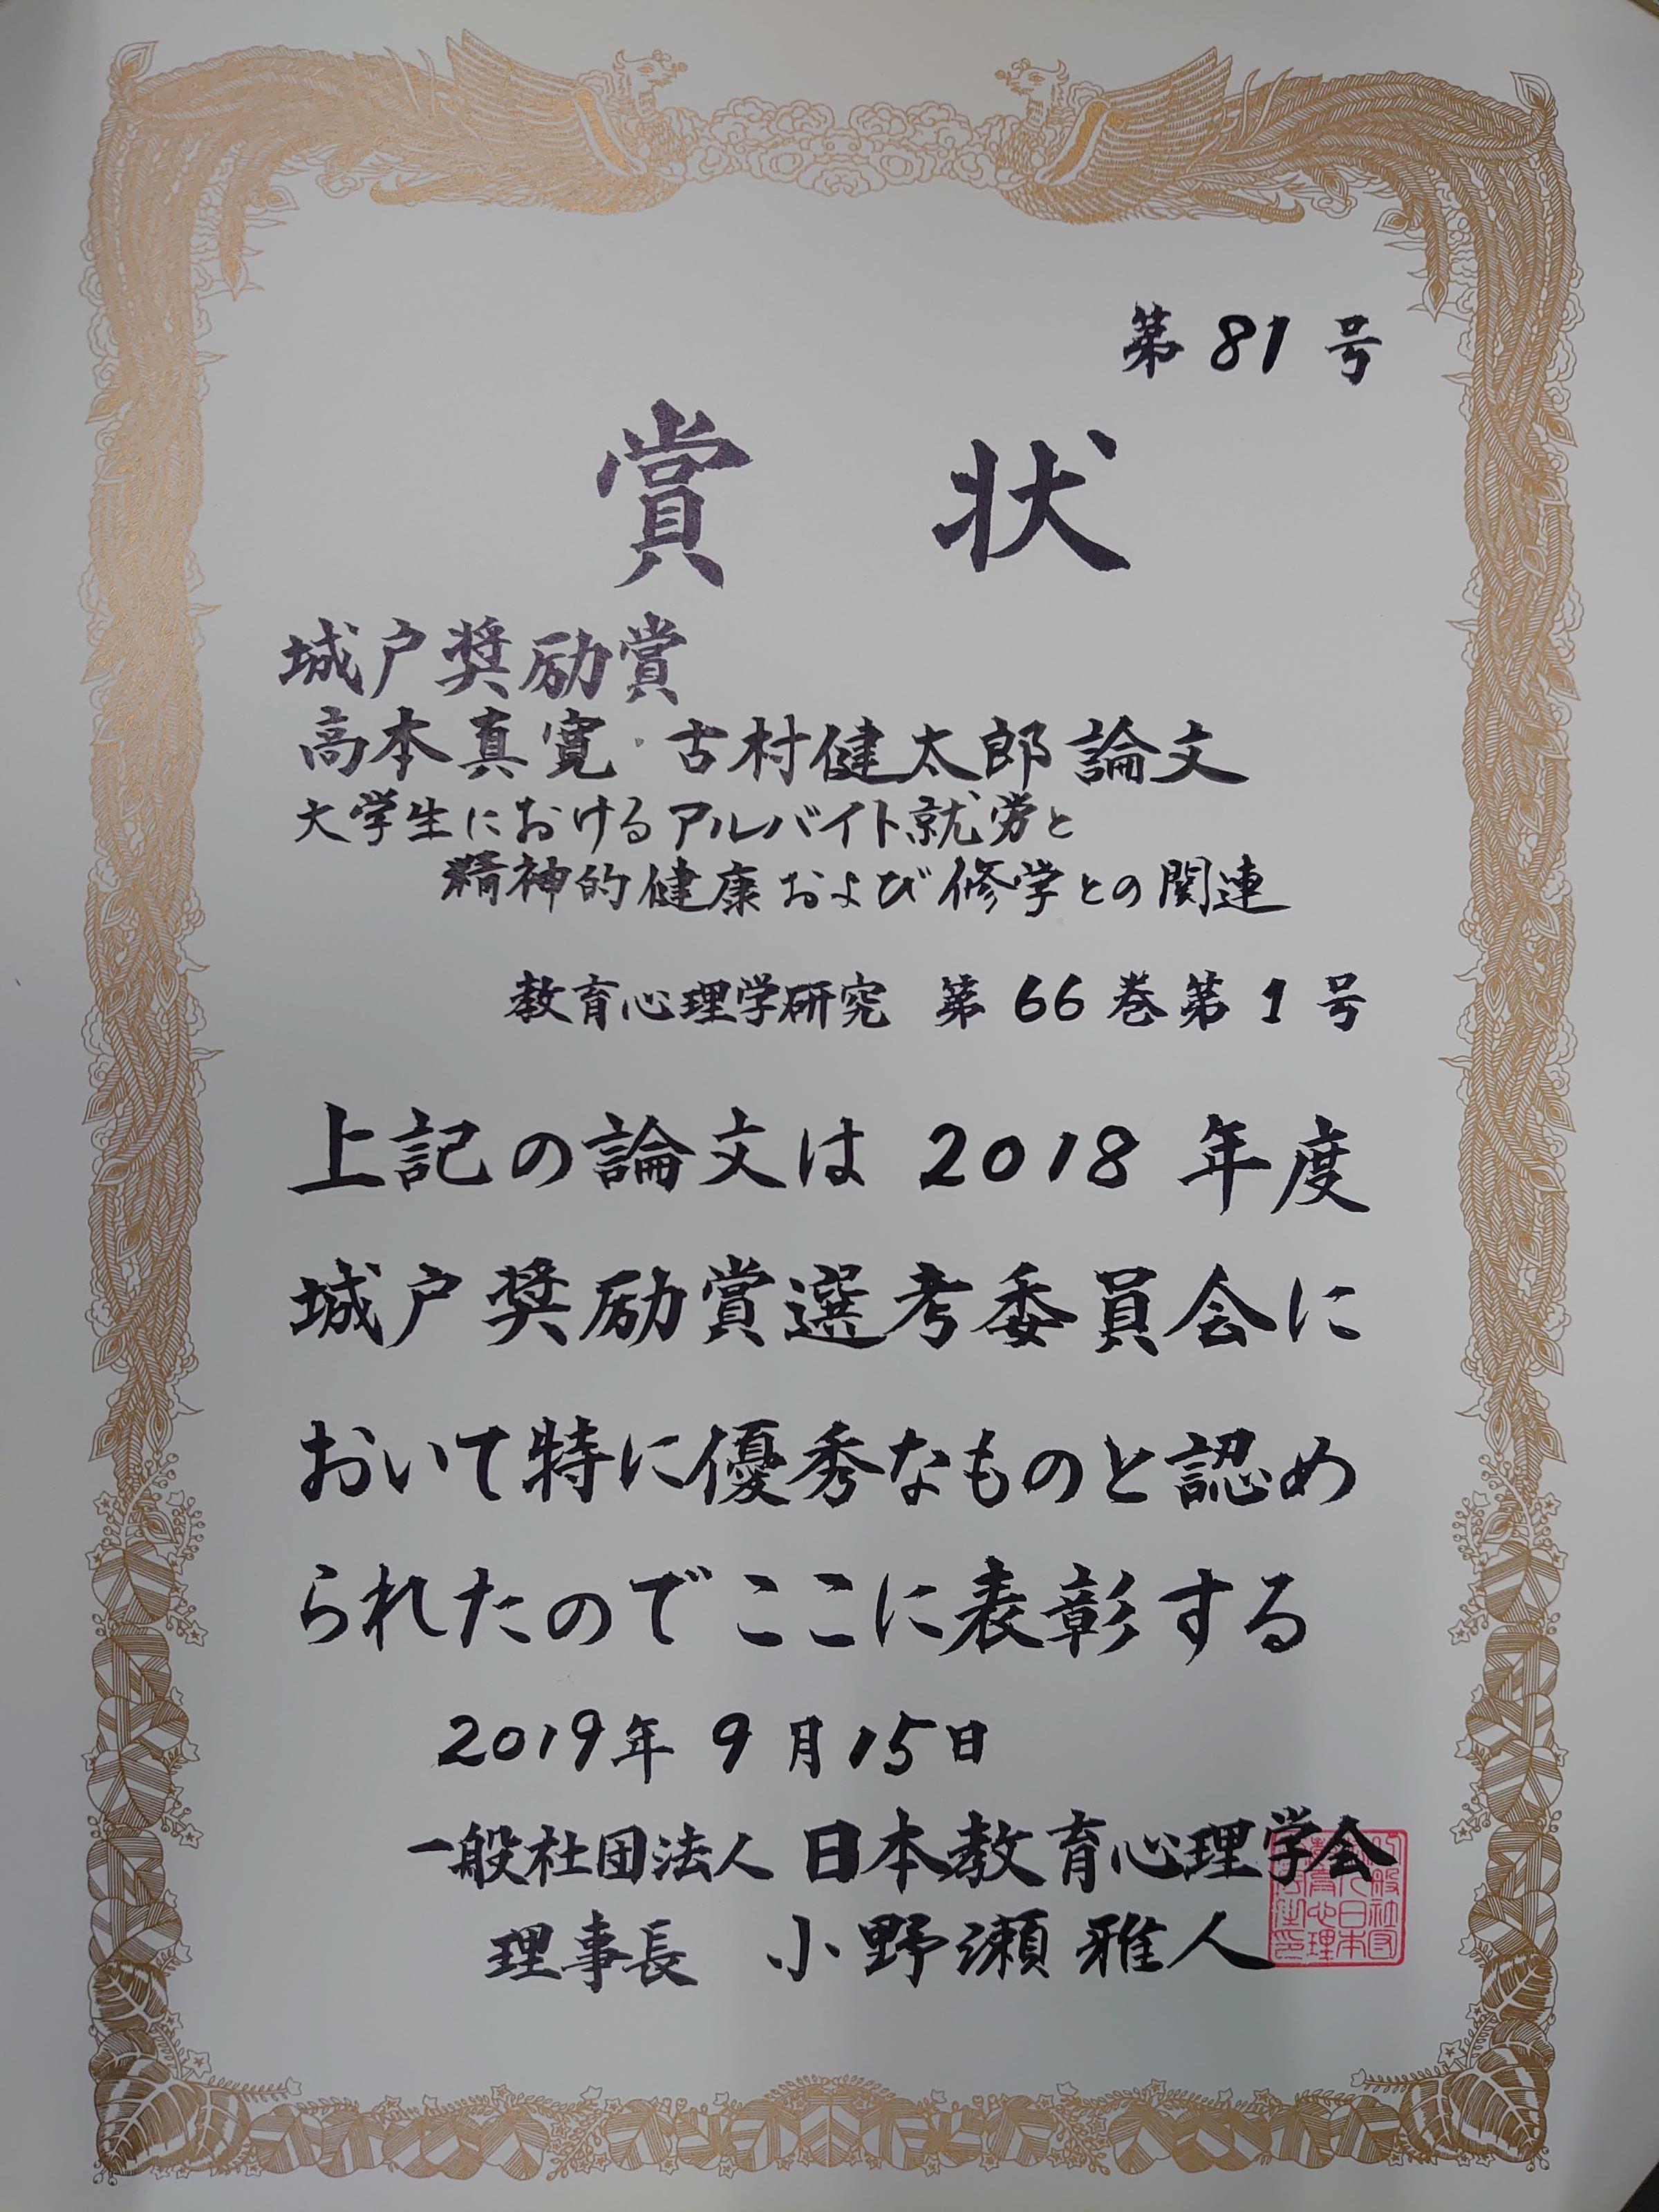 第81号
賞状
城戸奨励賞
高本真寛・古村健太郎論文
大学生におけるアルバイト就労と
精神的健康および修学との関連
教育心理学研究 第66巻第1号
上記の論文は2018年度
城戸奨励賞選考委員会に
おいて特に優秀なものと認め
られたのでここに表彰する
2019年9月15日
一般社団法人日本教育心理学会
理事長 小野瀬雅人